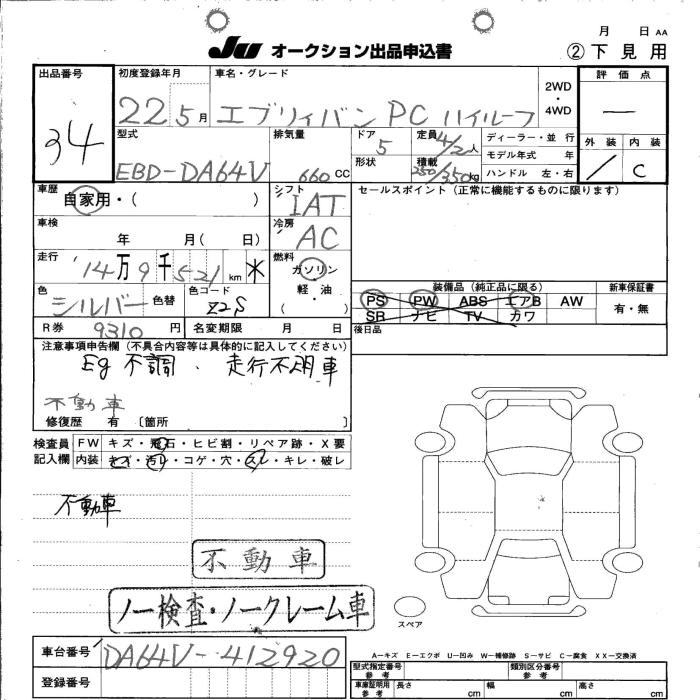 月 日 AA
JU オークション出品申込書
② 下見用
出品番号
34
初度登録年月
22 5月
車名・グレード
エブリィバン PC ハイルーフ
2WD
・
4WD
評価点
―
型式
EBD-DA64V
排気量
660 CC
ドア
5
定員 4/2人
形状
積載 250/350kg
ディーラー・並行
モデル年式 年
ハンドル 左・右
外装 内装
/ C
車歴
自家用・( )
シフト
IAT
セールスポイント(正常に機能するものに限ります)
車検
年 月( 日)
冷房
AC
走行
14万9千521km ✳
燃料
ガソリン
・
軽・油
( )
色
シルバー
色替
色コード
Z2S
装備品(純正品に限る)
新車保証書
PS PW ABS エアB AW
SR ナビ TV カワ
有・無
R券 9310 円
名変期限 月 日
後日品
注意事項申告欄(不具合内容等は具体的に記入してください)
Eg 不調、走行不明車
不動車
修復歴 有 [箇所 ]
検査員記入欄
FW キズ・飛石・ヒビ割・リペア跡・X要
内装 キズ・汚レ・コゲ・穴・スレ・キレ・破レ
不動車
不動車
ノー検査・ノークレーム車
スペア
A−キズ E−エクボ U−凹み W−補修跡 S−サビ C−腐食 XX−交換済
車台番号 DA64V-412920
登録番号
型式指定番号 参考
類別区分番号 参考
車庫証明用 参考
長さ cm
幅 cm
高さ cm